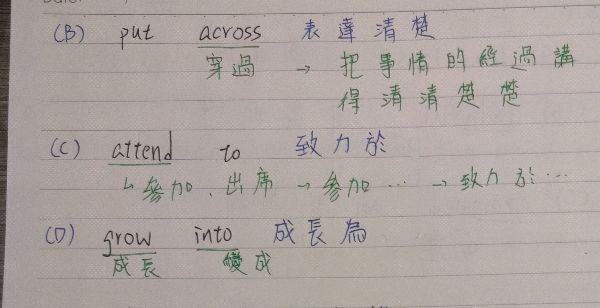 (B) put across 表達清楚
穿過 → 把事情的經過講
得清清楚楚
(C) attend to 致力於
↳參加、出席 → 參加… → 致力於…
(D) grow into 成長為
成長 變成